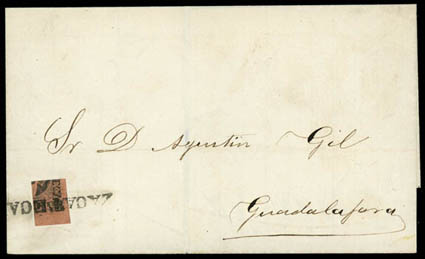 Sr D Agustin Gil
Guadalajara
ZACATECAS